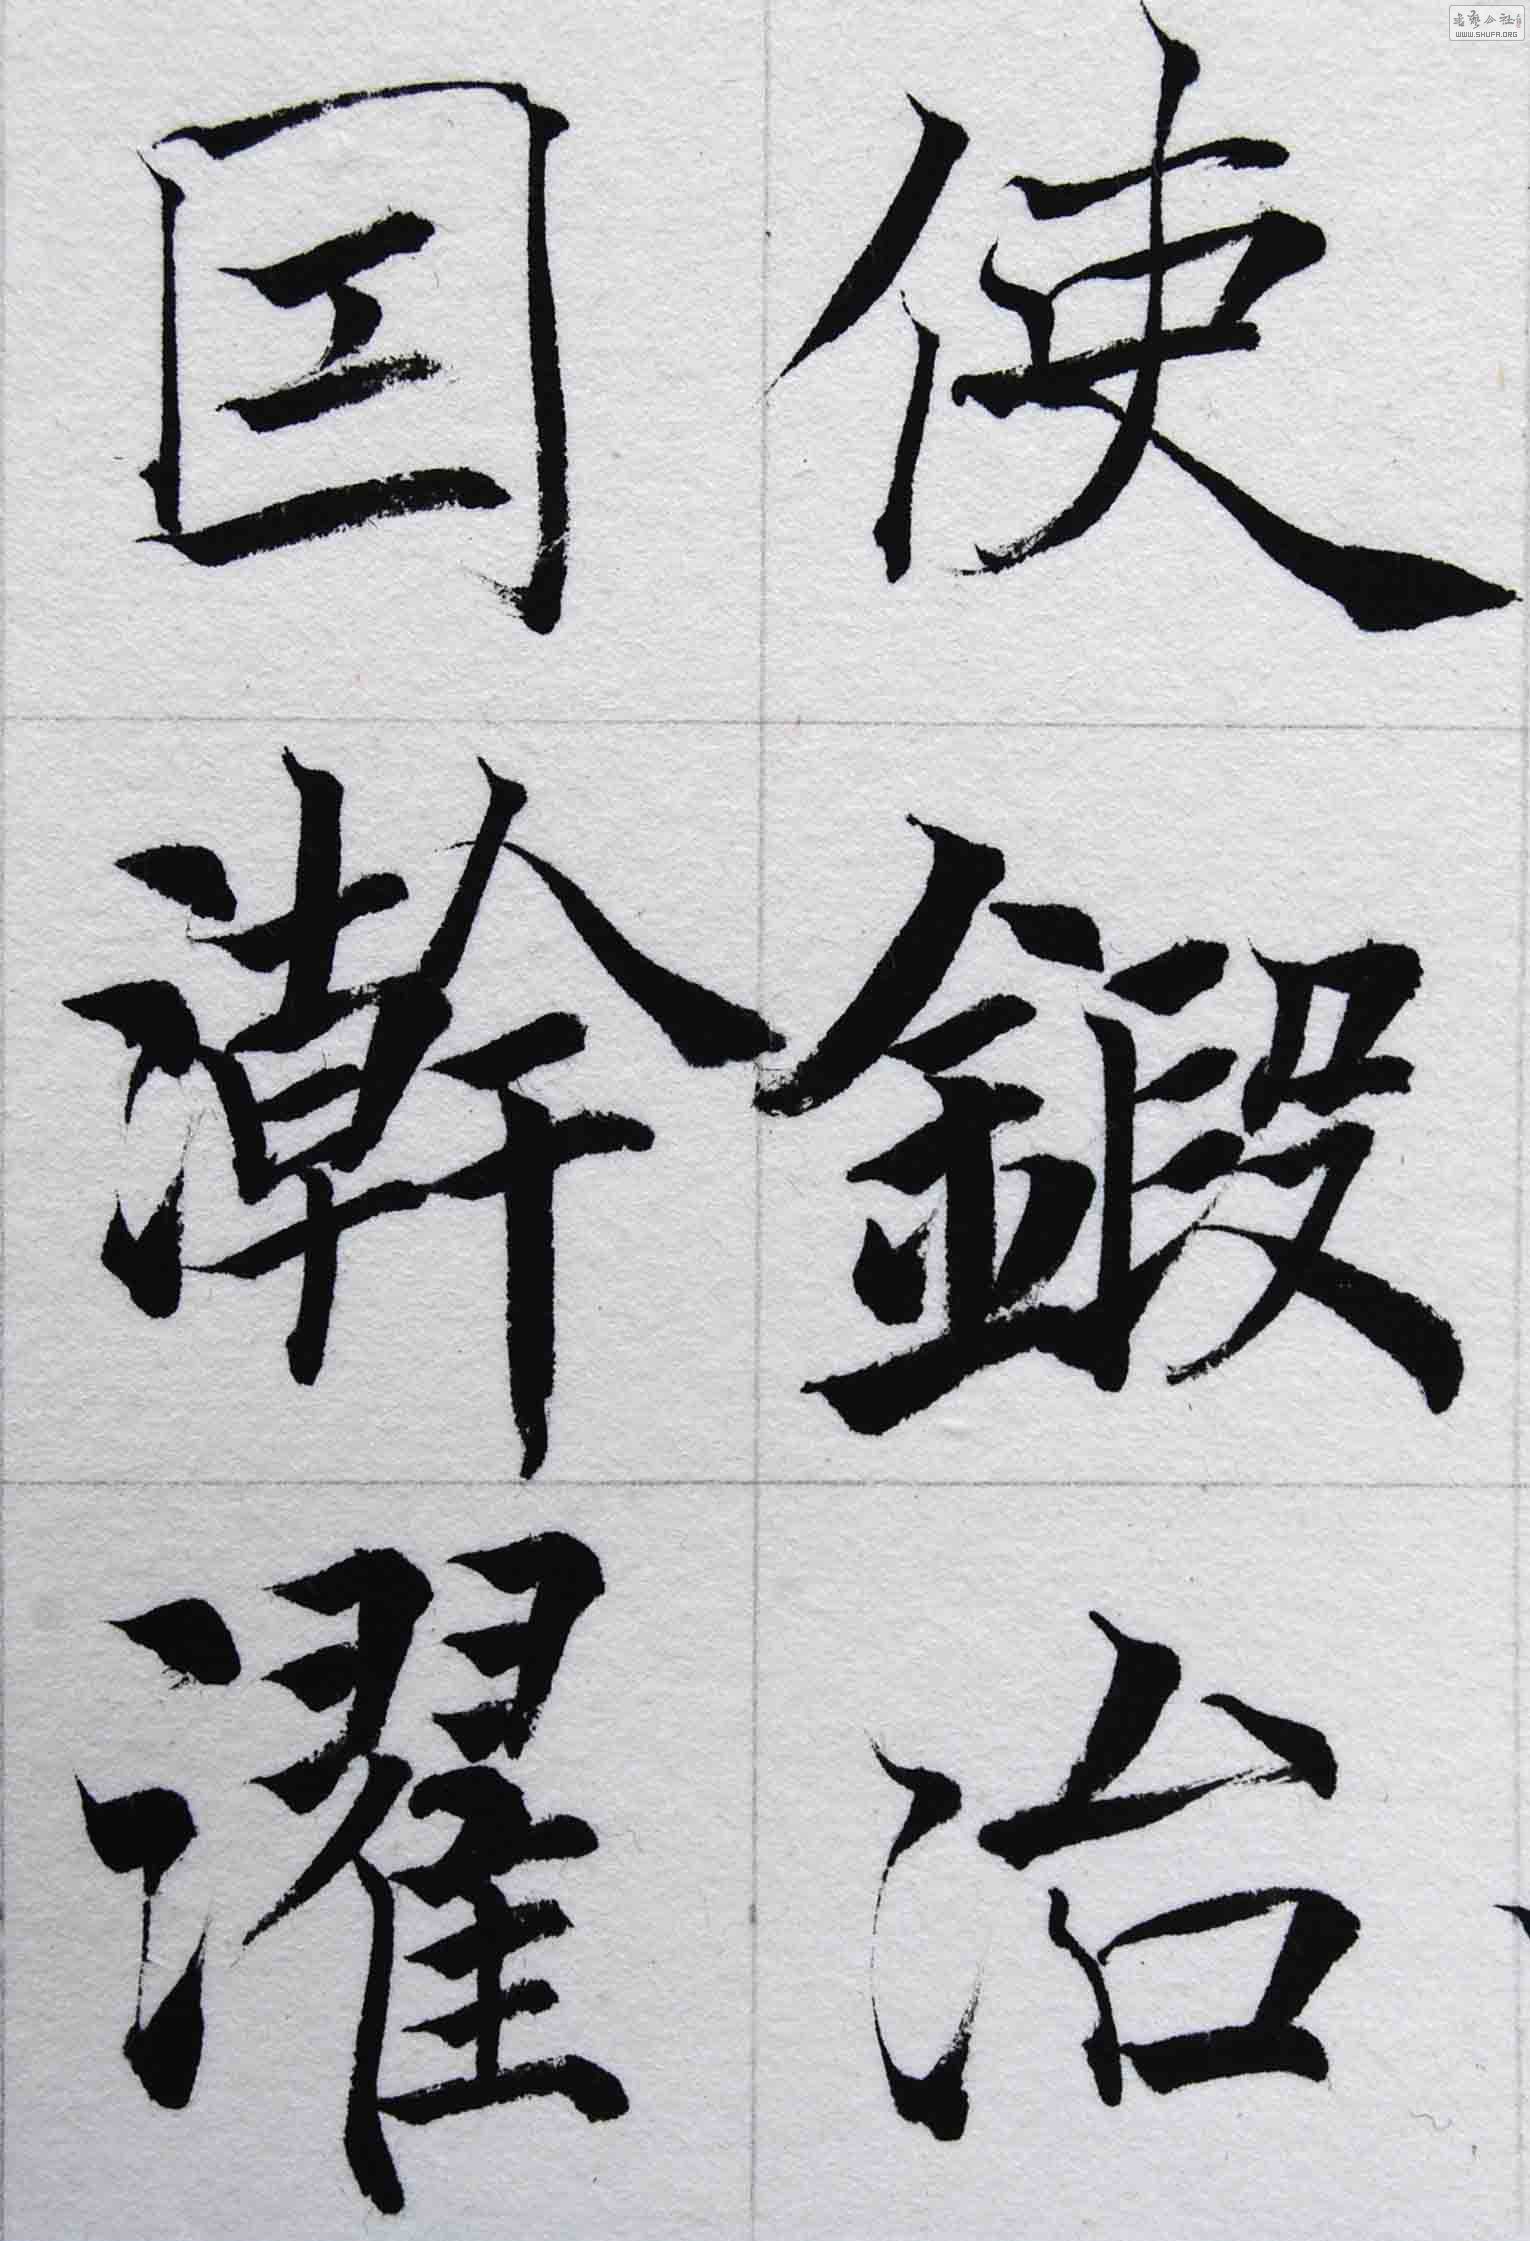 使鍛冶
因澣濯
书艺公社
WWW.SHUFA.ORG